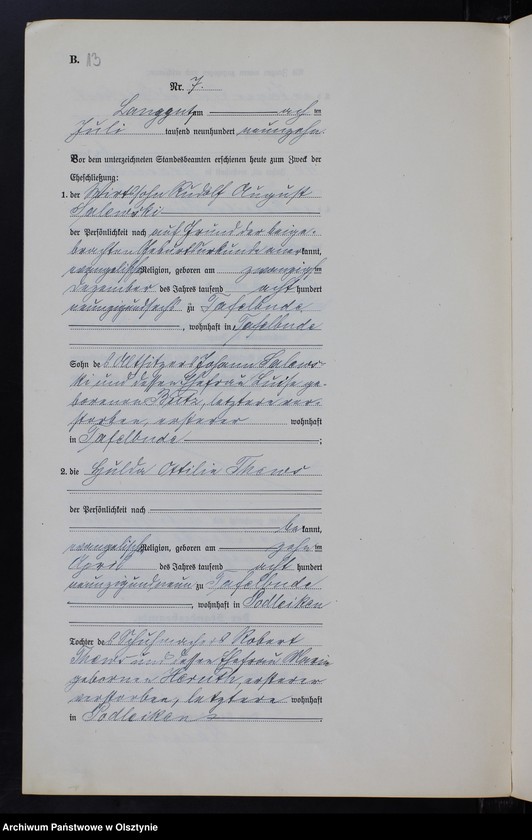 B. 13
Nr. 7.
Langgut am acht ten
Juli tausend neunhundert neunzehn.
Vor dem unterzeichneten Standesbeamten erschienen heute zum Zweck der
Eheschließung:
1. der Wirtssohn Rudolf August
Salewski
der Persönlichkeit nach auf Grund der beige-
brachten Geburtsurkunde aner kannt,
evangelischer Religion, geboren am zwanzigsten
Dezember des Jahres tausend acht hundert
neunzigundsechs zu Tafelbude
, wohnhaft in Tafelbude
Sohn des Altsitzers Johann Salews-
ki und dessen Ehefrau Luise ge-
borenen, letztere ver-
storben, ersterer wohnhaft
in Tafelbude ;
2. die Hulda Ottilie Thews
der Persönlichkeit nach
be kannt,
evangelischer Religion, geboren am zehn ten
April des Jahres tausend acht hundert
neunzigundneun zu Tafelbude
, wohnhaft in Podleiken
Tochter des Schuhmachers Robert
Thews und dessen Ehefrau Marie
geborenen, ersterer
verstorben, letztere wohnhaft
in Podleiken .
Archiwum Państwowe w Olsztynie